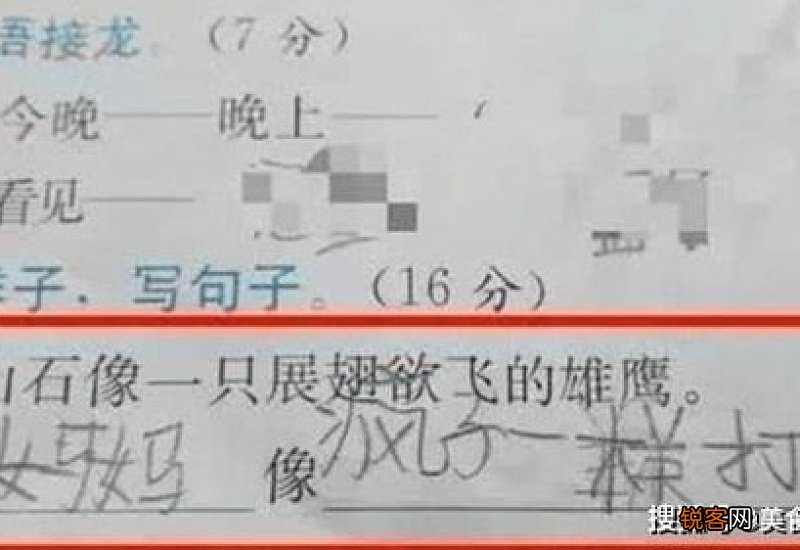 语接龙。（7 分）
今晚——晚上——
看见——
子．写句子。（16 分）
山石像一只展翅欲飞的雄鹰。
妈妈 像 疯子一样打
搜 锐客网 美食